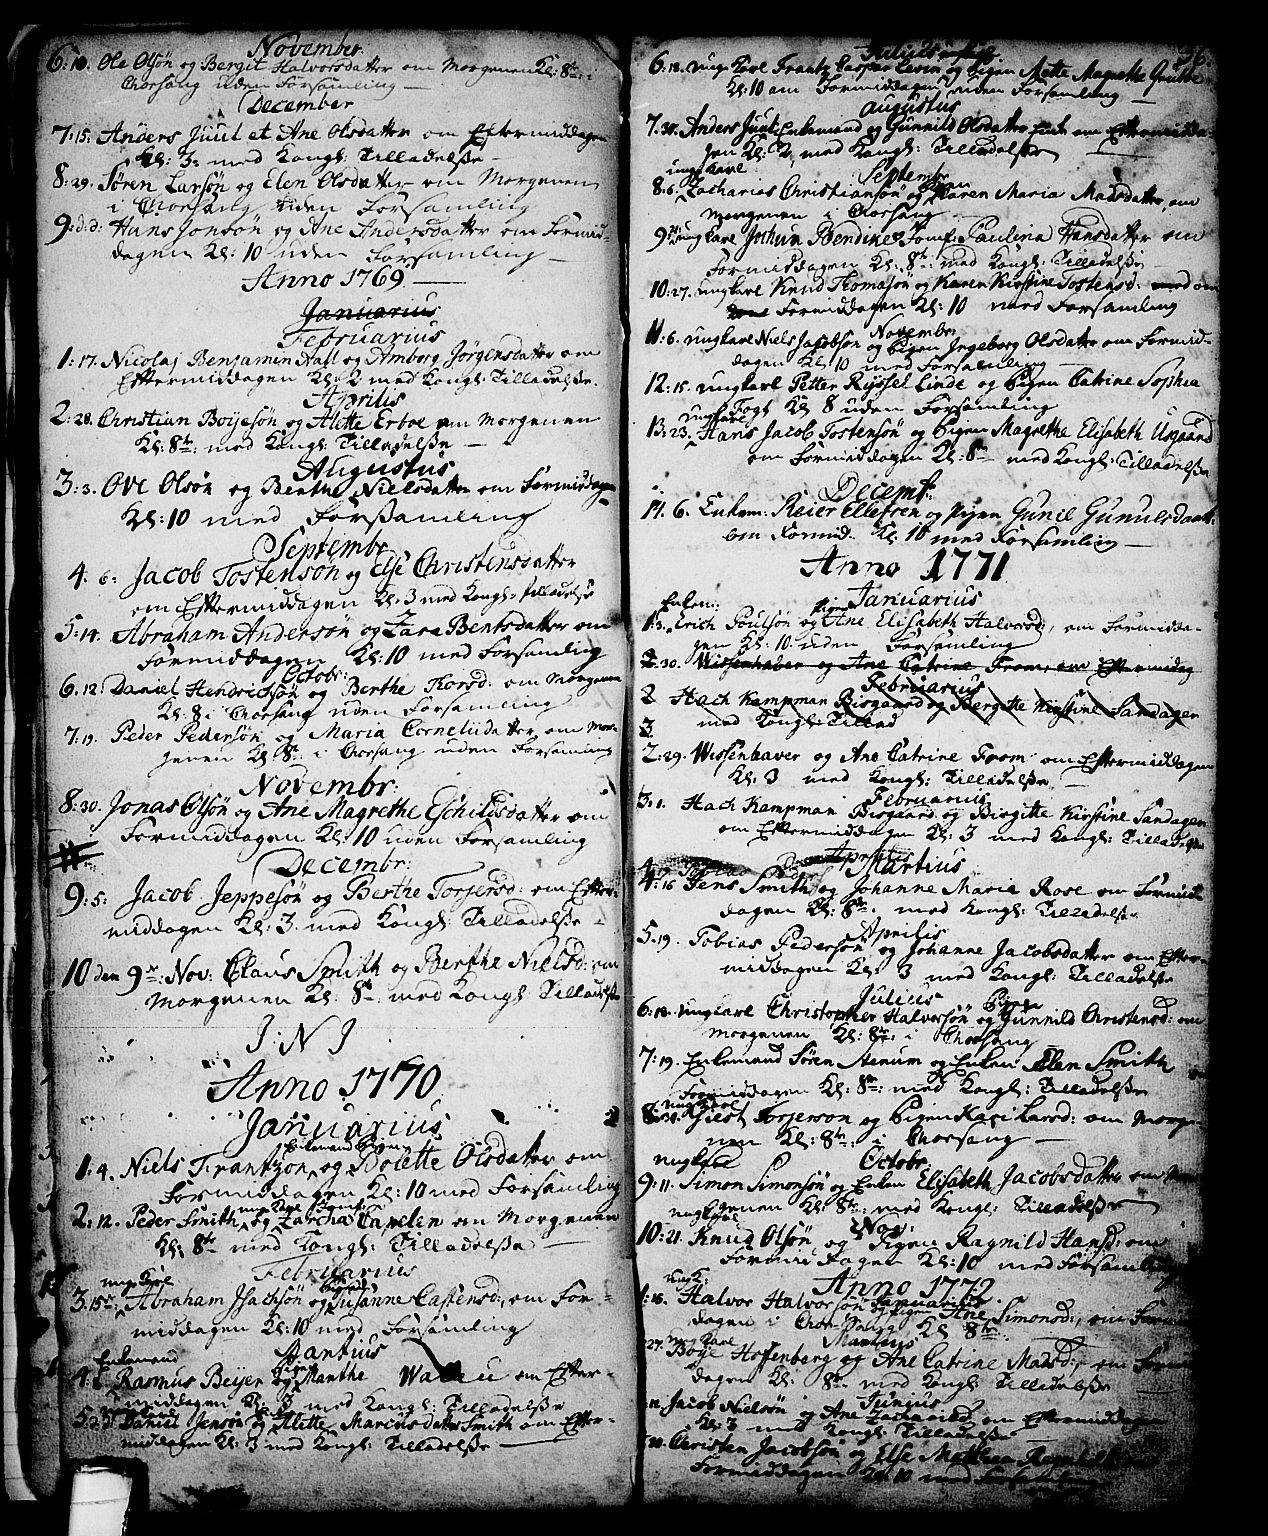 November.
6:10. Ole Olsön og Bergit Halvorsdatter om Morgenen Kl: 8te:
Chorsang uden Forsamling —
December
7:15: Anders Juul et Ane Olsdatter om Eftermiddagen
Kl: 3: med Kongl: Tilladelße —
8:29. Sören Larsön og Elen Olsdatter om Morgenen
i Chorsang uden Forsamling
9:d:d: Hans Jonsön og Ane Andersdatter om Formid-
dagen Kl: 10 uden Forsamling —
Anno 1769 —
Januarius
Februarius
1:17. Nicolaj Benjamin Aall og Amborg Jörgensdatter om
Eftermiddagen Kl: 2 med Kongl: Tilladelße.
Aprilis
2:28. Christian Boijesön og Alette Erboe om Morgenen
Kl: 8te: med Kongl: Tilladelße —
Augustus
3:3. Ove Olsön og Berthe Nielsdatter om Formiddagen
Kl: 10 med Forßamling
Septembr
4. 6: Jacob Tostensön og Else Christensdatter
om Eftermiddagen Kl: 3 med Kongl: Tilladelße
5:14. Abraham Andersön og Zara Bentsdatter om
Formiddagen Kl: 10 med Forsamling
Octobr:
6.12: Daniel Hendrichsön og Berthe Torsd: om Morgenen
Kl: 8 i Chorsang uden Forsamling
7:19. Peder Pedersön og Maria Corneliidatter om Mor-
genen Kl: 8te: i Chorsang uden Forsamling
Novembr:
8:30. Jonas Olsön og Ane Magrethe Eschildsdatter om
Formiddagen Kl: 10 uden Forsamling
Decembr:
9:5: Jacob Jeppesön og Berthe Torjersd: om Efter-
middagen Kl: 3. med Kongl: Tilladelße —
10 den 9de: Nov: Claus Smith og Berthe Nielsd: om
Morgenen Kl: 8te: med Kongl: Tilladelße
I: N I
Anno 1770
Januarius
Enkemand Pigen
1:4. Niels Frantzon og Bolette Olsdatter om
Formiddagen Kl: 10 med Forsamling
2:12. Peder Smith og Zarcha Capelen om Morgenen
Kl: 8te: med Kongl: Tilladelße —
Februarius
ungKarl Pigen
3.15de Abraham Isachsön og Susanne Castensd:, om For-
middagen Kl: 10 med Forsamling
Enkemand Martius Pigen
4: Rasmus Beijer og Manthe om Efter-
middagen Kl: 3 med Kongl: Tilladelße
5:23 Daniel Jensön og Alette Marcusdatter Smith om Efter-
middagen Kl: 3 med Kongl: Tilladelße —
36.
6.18. ungKarl Frantz Casper og Pigen Mette Magrethe
Kl: 10 om Formiddagen uden Forsamling —
Augustus
7.30. Anders Juul Enkemand og Gunnild Olsdatter Enke om Eftermidda-
gen Kl: 2 med Kongl: Tilladelße —
ungKarl Septembr Pigen
8:6. Zacharias Christiansön og Karen Maria Madsdatter, om
Morgenen i Chorsang
9 ungKarl Jochum Bendixen og Jomf: Paulina Hansdatter om
Formiddagen Kl: 8te: med Kongl: Tilladelße —
10:27. ungKarl Knud Thomasön og Karen Kirstine Tostensd: med om
Formiddagen Kl: 10 med Forsamling
Novembr:
11.6. ungKarl Niels Jacobsön og Pigen Ingeborg Olsdatter om Formid-
dagen Kl: 10 med Forsamling —
12:15. ungKarl Petter Rijssel Linde og Pigen Catrine Sophia
Fogt Kl 8 uden Forsamling
ungKarl
13:23. Hans Jacob Tostensön og Pigen Magrethe Elisabeth Usgaard
om Formiddagen Kl: 8te med Kongl: Tilladelße
Decemb:
14. 6. Enkem: Reier Ellefsen og Pigen Gunil Gunulsdaatt:
om Formid. Kl: 10 med Forsamling —
Anno 1771
Januarius
Enkem: Pigen
1:3. Erich Poulsön og Ane Elisabeth Halvorsd:, om Formidda-
gen Kl: 10 uden Forsamling
2:30. Wissenhaber og Ane Catrine From, om Eftermidag
Februarius
2 Hach Kampman Bisgaard og Bergitte Kirstine Sandager
3. med Kongl: Tillad
2:29. Wissenhaver og Ane Catrine From om Eftermiddagen
Kl: 3 med Kongl: Tilladelße —
Februarius
3:1. Hach Kampman Bisgaard og Birgitte Kirstine Sandager
om Eftermiddagen Kl: 3 med Kongl: Tilladelße
Aprilis
Martius
4:16 Jens Smith og Johanne Maria Rose om Formid-
dagen Kl: 8te: med Kongl: Tilladelße
Aprilis
5:19. Tobias Pedersön og Johanne Jacobsdatter om Efter-
middagen Kl: 3 med Kongl: Tilladelße
Julius Pigen
6:18. ungKarl Christopher Halvorsön og Gunnild Christensd: om
Morgenen Kl: 8te: i Chorsang
7:19. Enkemand Sören Stenum og Enken Elen Smith
Formiddagen Kl: 8te: med Kongl: Tilladelße
ungKarl
8:30. Gjest Torjerson og Pigen Kari Larsd: om Morge-
nen Kl: 8te: i Chorsang —
ungKarl Octobr
9:11. Simon Simonsön og Enken Elisabeth Jacobsdatter om Mor-
genen Kl: 8te: med Kongl: Tilladelße
ungKarl Nov:
10:21. Knud Olsön og Pigen Ragnild Hansd: om
Formiddagen Kl: 10 med Forsamling
Anno 1772
ungK: Januarius
1:16. Halvor Halvorsön og Pigen Ane Simonsd:, om Formid
dagen i Chor-Sang Kl 8te:
ungKarl Martius
27. Boije Hoffenberg og Ane Catrine Madsd:, om Formid
dagen Kl: 8te med Kongl: Tilladelße
Junius
Jacob Nielsön og Ane om Eftermiddagen
Kl: 3 med Kongl: Tilladelße —
Christen Jacobsön og Else
Formiddagen Kl: 10 med Forsamling